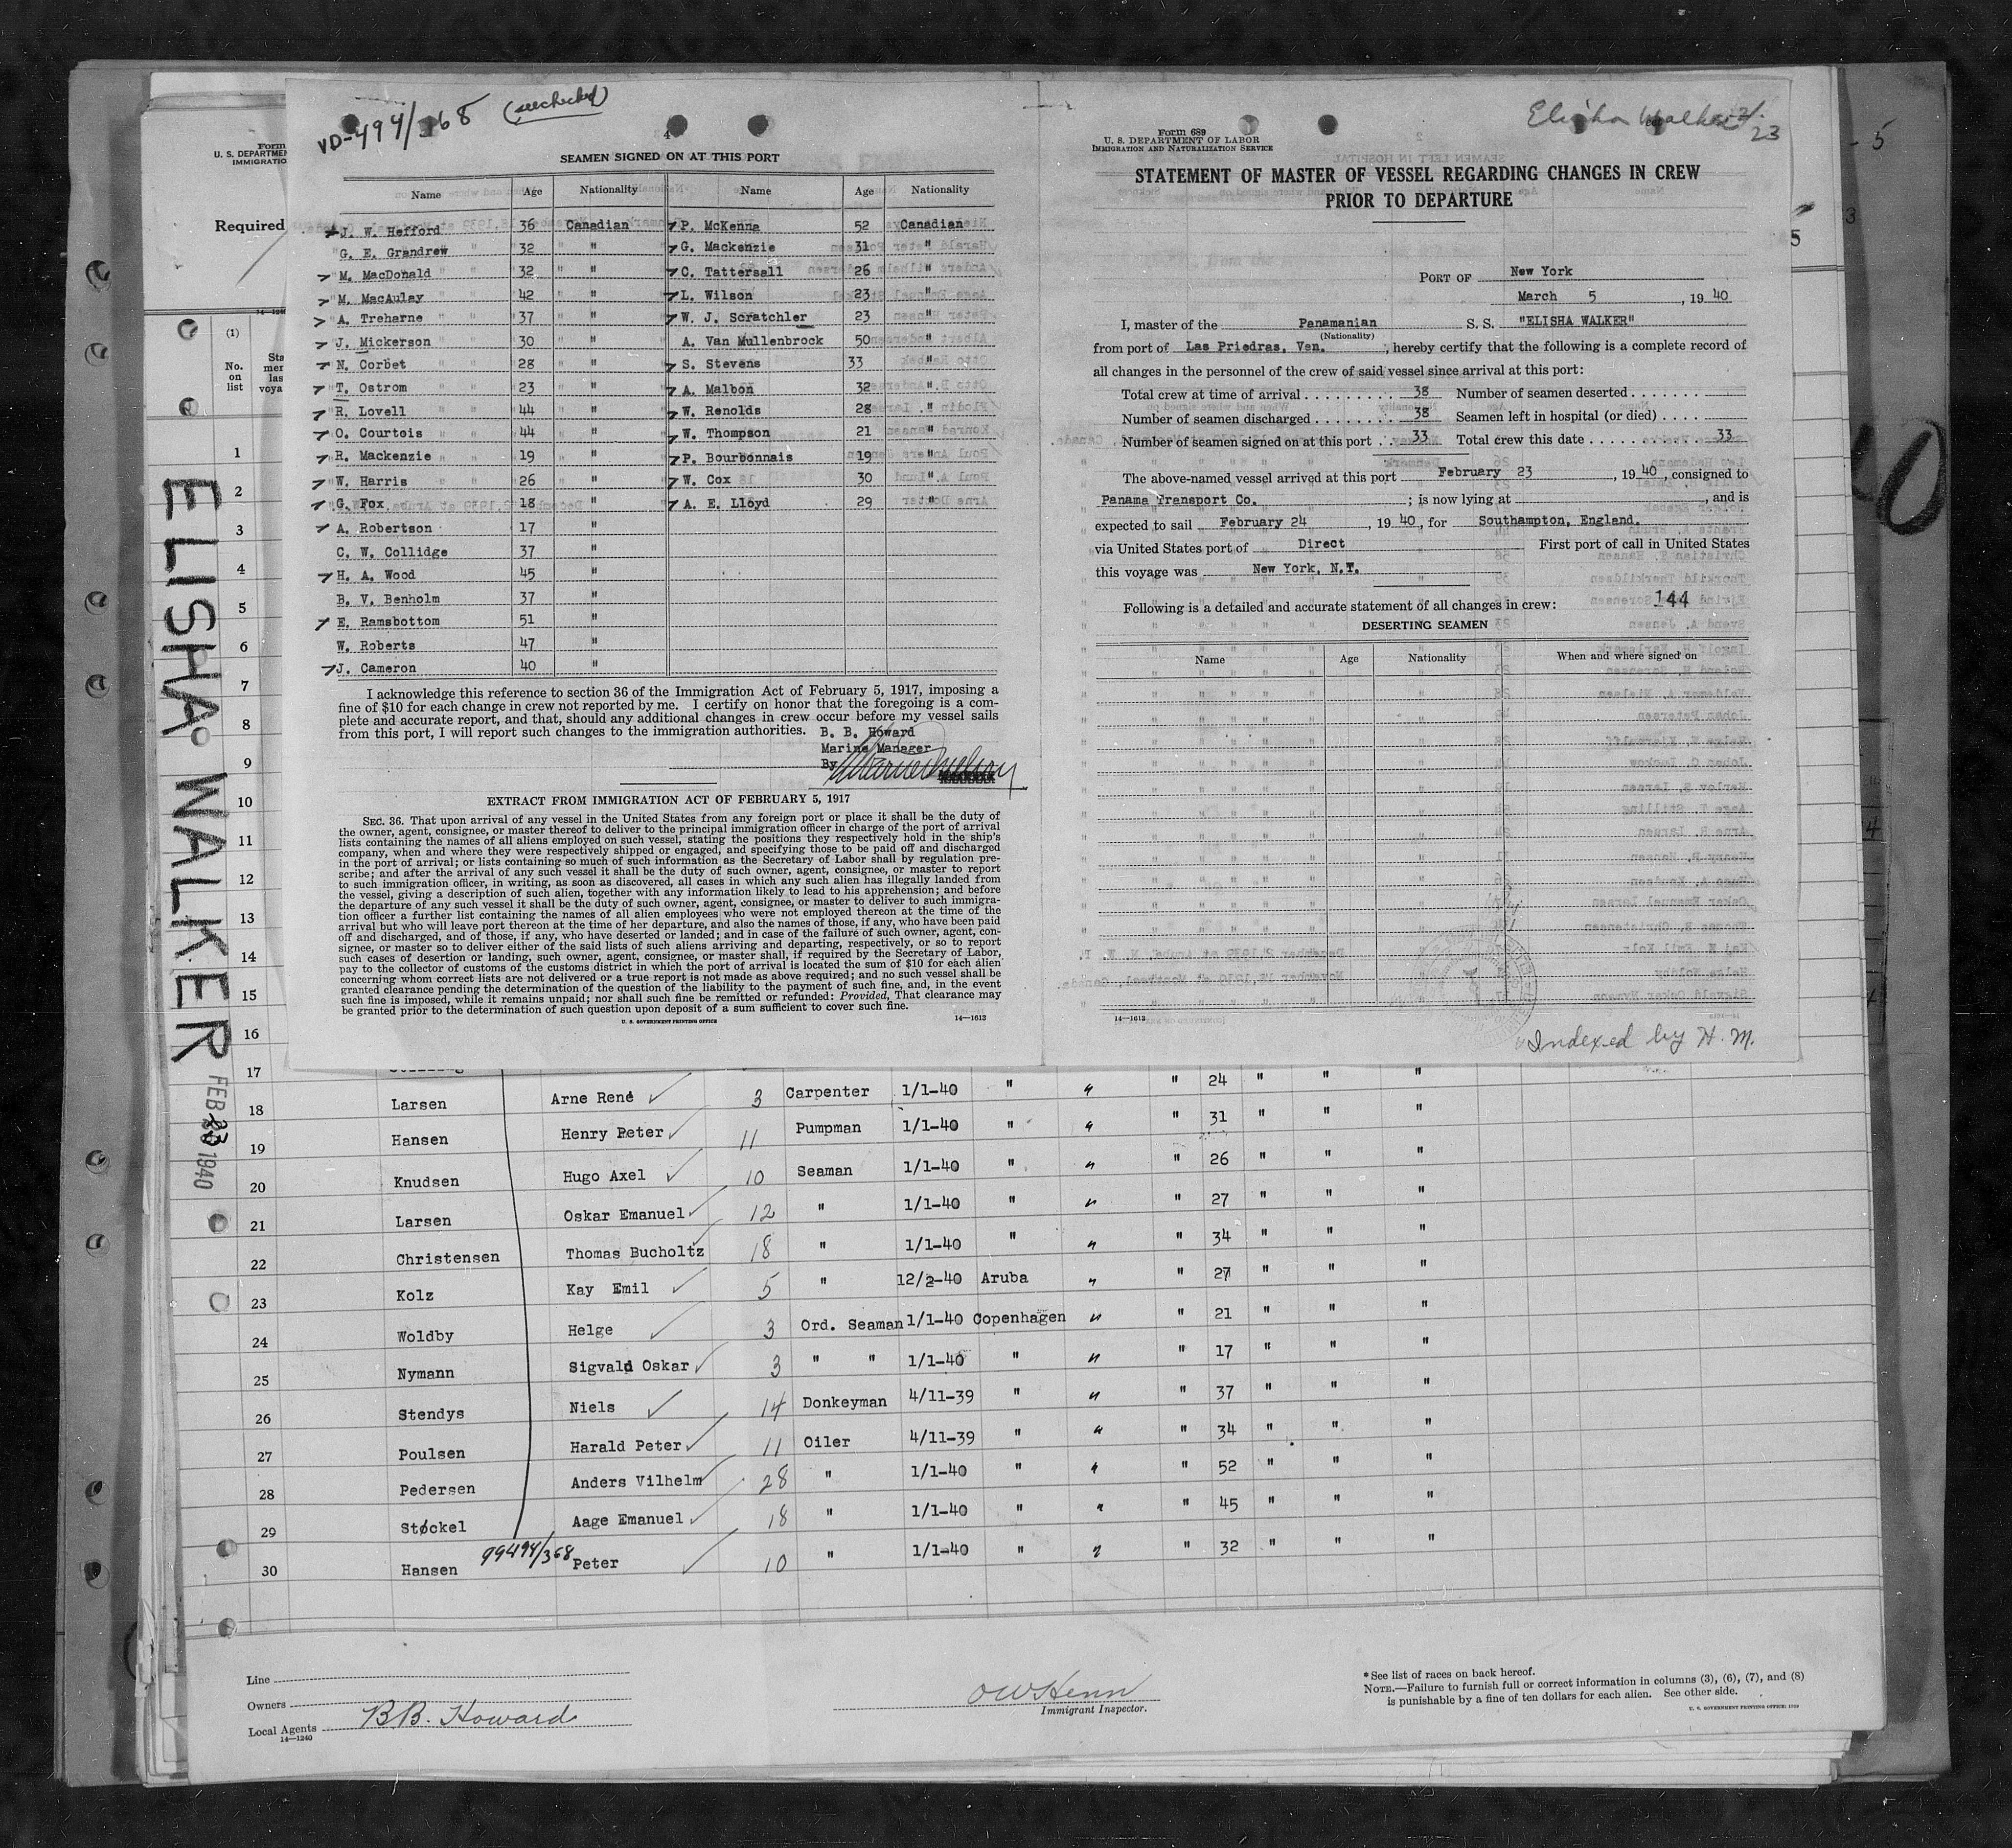 VD-494/368
4
SEAMEN SIGNED ON AT THIS PORT
Name Age Nationality Name Age Nationality
J. W. Hefford 36 Canadian P. McKenna 52 Canadian
G. E. Grandrew 32 " G. Mackenzie 31 "
M. MacDonald 32 " C. Tattersall 26 "
M. MacAulay 42 " L. Wilson 23 "
A. Treharne 37 " W. J. Scratchler 23 "
J. Mickerson 30 " A. Van Mullenbrock 50 "
N. Corbet 28 " S. Stevens 33 "
T. Ostrom 23 " A. Malbon 32 "
R. Lovell 44 " W. Renolds 28 "
O. Courtois 44 " W. Thompson 21 "
R. Mackenzie 19 " P. Bourbonnais 19 "
W. Harris 26 " W. Cox 30 "
G. Fox 18 " A. E. Lloyd 29 "
A. Robertson 17 "
C. W. Collidge 37 "
H. A. Wood 45 "
B. V. Benholm 37 "
E. Ramsbottom 51 "
W. Roberts 47 "
J. Cameron 40 "
I acknowledge this reference to section 36 of the Immigration Act of February 5, 1917, imposing a
fine of $10 for each change in crew not reported by me. I certify on honor that the foregoing is a com-
plete and accurate report, and that, should any additional changes in crew occur before my vessel sails
from this port, I will report such changes to the immigration authorities. B. B. Howard
Marine Manager
By
EXTRACT FROM IMMIGRATION ACT OF FEBRUARY 5, 1917
SEC. 36. That upon arrival of any vessel in the United States from any foreign port or place it shall be the duty of
the owner, agent, consignee, or master thereof to deliver to the principal immigration officer in charge of the port of arrival
lists containing the names of all aliens employed on such vessel, stating the positions they respectively hold in the ship's
company, when and where they were respectively shipped or engaged, and specifying those to be paid off and discharged
in the port of arrival; or lists containing so much of such information as the Secretary of Labor shall by regulation pre-
scribe; and after the arrival of any such vessel it shall be the duty of such owner, agent, consignee, or master to report
to such immigration officer, in writing, as soon as discovered, all cases in which any such alien has illegally landed from
the vessel, giving a description of such alien, together with any information likely to lead to his apprehension; and before
the departure of any such vessel it shall be the duty of such owner, agent, consignee, or master to deliver to such immigra-
tion officer a further list containing the names of all alien employees who were not employed thereon at the time of the
arrival but who will leave port thereon at the time of her departure, and also the names of those, if any, who have been paid
off and discharged, and of those, if any, who have deserted or landed; and in case of the failure of such owner, agent, con-
signee, or master so to deliver either of the said lists of such aliens arriving and departing, respectively, or so to report
such cases of desertion or landing, such owner, agent, consignee, or master shall, if required by the Secretary of Labor,
pay to the collector of customs of the customs district in which the port of arrival is located the sum of $10 for each alien
concerning whom correct lists are not delivered or a true report is not made as above required; and no such vessel shall be
granted clearance pending the determination of the question of the liability to the payment of such fine, and, in the event
such fine is imposed, while it remains unpaid; nor shall such fine be remitted or refunded: Provided, That clearance may
be granted prior to the determination of such question upon deposit of a sum sufficient to cover such fine.
U. S. GOVERNMENT PRINTING OFFICE 14—1613
Elisha Walker 2/23
Form 689
U. S. DEPARTMENT OF LABOR
IMMIGRATION AND NATURALIZATION SERVICE
STATEMENT OF MASTER OF VESSEL REGARDING CHANGES IN CREW
PRIOR TO DEPARTURE
PORT OF New York
March 5, 1940
I, master of the Panamanian S. S. "ELISHA WALKER"
(Nationality)
from port of Las Priedras, Ven., hereby certify that the following is a complete record of
all changes in the personnel of the crew of said vessel since arrival at this port:
Total crew at time of arrival 38 Number of seamen deserted
Number of seamen discharged 38 Seamen left in hospital (or died)
Number of seamen signed on at this port 33 Total crew this date 33
The above-named vessel arrived at this port February 23, 1940, consigned to
Panama Transport Co.; is now lying at , and is
expected to sail February 24, 1940, for Southampton, England.
via United States port of Direct First port of call in United States
this voyage was New York, N.T.
Following is a detailed and accurate statement of all changes in crew: 144
DESERTING SEAMEN
Name Age Nationality When and where signed on
14—1613
Indexed by H. M.
Form
U. S. DEPARTMEN
IMMIGRATIO
Required
14—1240
(1)
No. on list
Sta
mer
las
voya
1
2
3
4
5
6
7
8
9
10
11
12
13
14
15
16
17
ELISHA WALKER
FEB 23 1940
" 24 " " "
18 Larsen Arne René 3 Carpenter 1/1-40 " " " 31 " " "
19 Hansen Henry Peter 11 Pumpman 1/1-40 " " " 26 " " "
20 Knudsen Hugo Axel 10 Seaman 1/1-40 " " " 27 " " "
21 Larsen Oskar Emanuel 12 " 1/1-40 " " " 34 " " "
22 Christensen Thomas Bucholtz 18 " 1/1-40 " " " 27 " " "
23 Kolz Kay Emil 5 " 12/2-40 Aruba " " 21 " " "
24 Woldby Helge 3 Ord. Seaman 1/1-40 Copenhagen " " 17 " " "
25 Nymann Sigvald Oskar 3 " " 1/1-40 " " " 37 " " "
26 Stendys Niels 14 Donkeyman 4/11-39 " " " 34 " " "
27 Poulsen Harald Peter 11 Oiler 4/11-39 " " " 52 " " "
28 Pedersen Anders Vilhelm 28 " 1/1-40 " " " 45 " " "
29 Støckel Aage Emanuel 18 " 1/1-40 " " " 32 " " "
30 Hansen 99494/368 Peter 10 " 1/1-40 " "
Line
Owners
Local Agents B.B. Howard
14—1240
OW Henn
Immigrant Inspector.
* See list of races on back hereof.
NOTE.—Failure to furnish full or correct information in columns (3), (6), (7), and (8)
is punishable by a fine of ten dollars for each alien. See other side.
U. S. GOVERNMENT PRINTING OFFICE